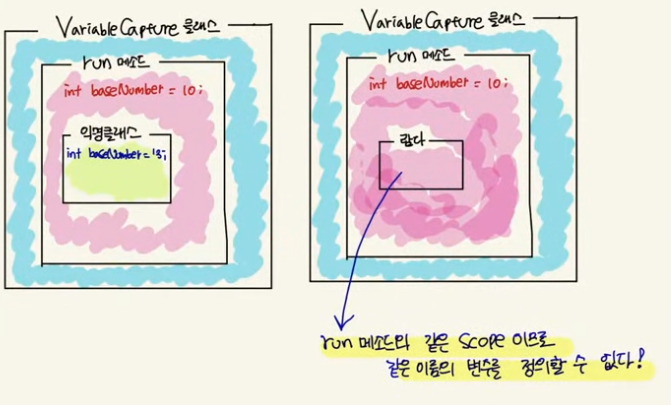 VariableCapture 클래스
run 메소드
int baseNumber = 10;
익명클래스
int baseNumber = 13;
VariableCapture 클래스
run 메소드
int baseNumber = 10;
람다
run 메소드와 같은 Scope 이므로
같은 이름의 변수를 정의할 수 없다!